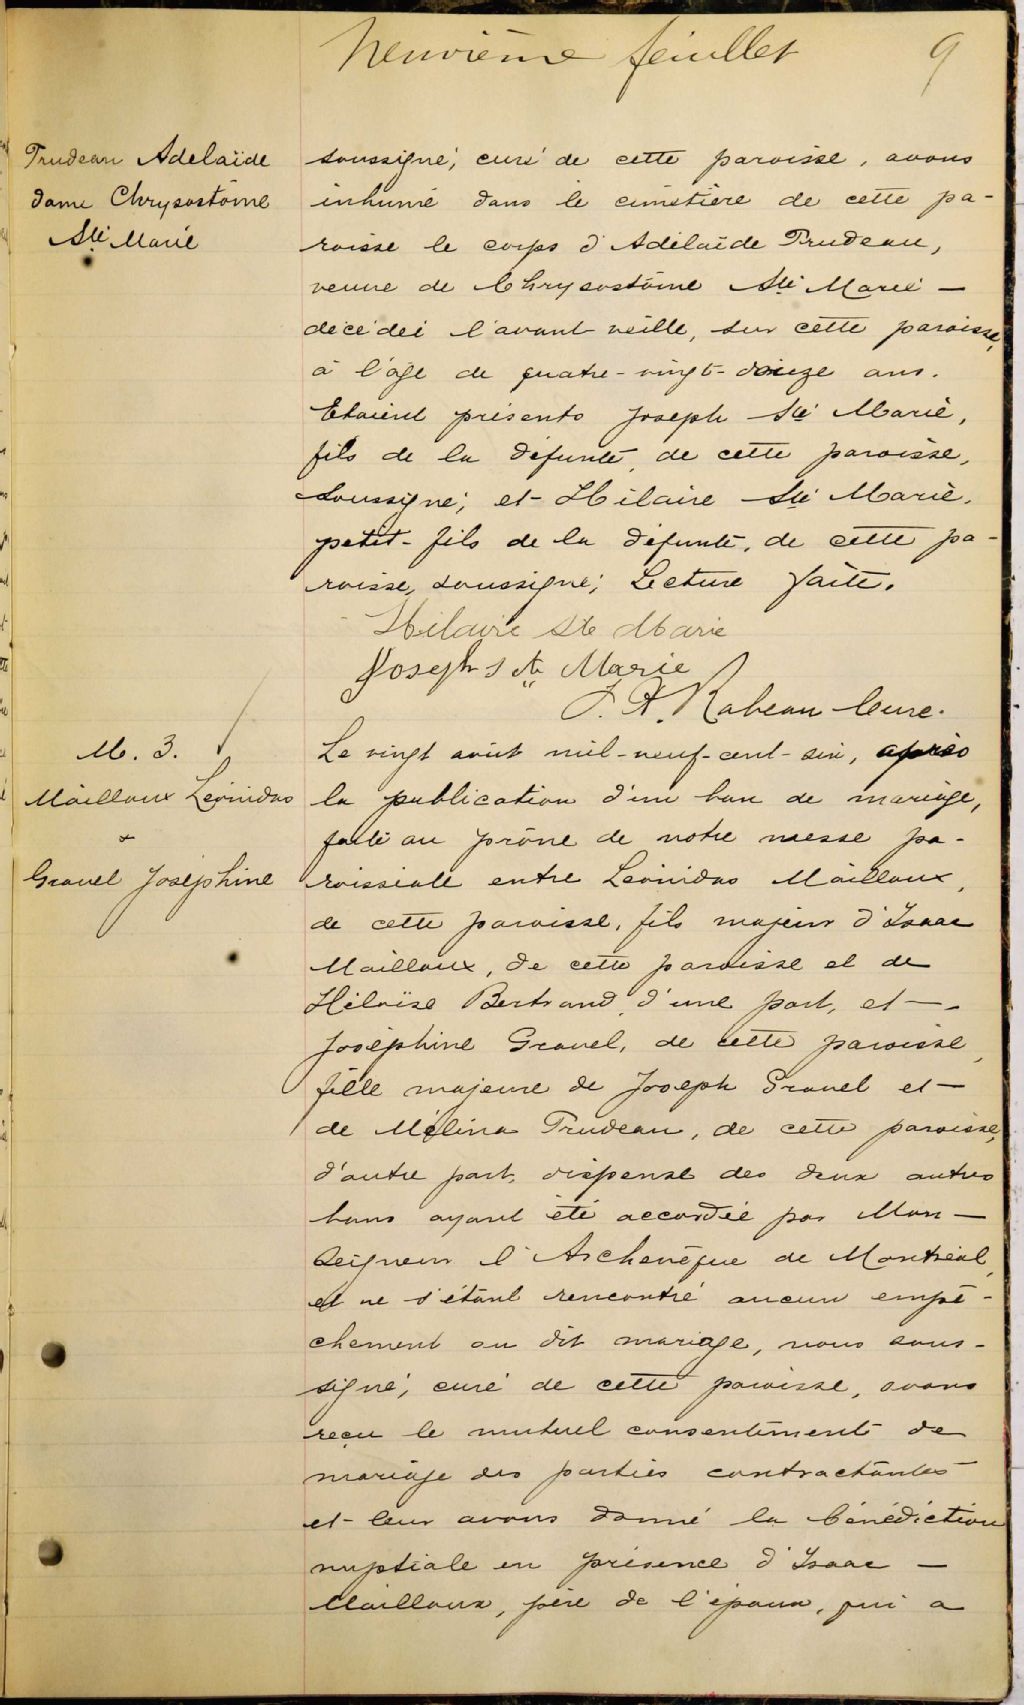 Neuvième feuillet 9
Trudeau Adelaïde
dame Chrysostôme
Ste Marie
soussigné, curé de cette paroisse, avons
inhumé dans le cimetière de cette pa-
roisse le corps d'Adélaïde Trudeau,
veuve de Chrysostôme Ste Marie —
décédée l'avant veille, sur cette paroisse,
à l'âge de quatre-vingt-douze ans.
Etaient présents Joseph Ste Marie,
fils de la défunte, de cette paroisse,
soussigné; et Hilaire Ste Marie,
petit-fils de la défunte, de cette pa-
roisse, soussigné; Lecture faite.
Hilaire Ste Marie
Joseph Ste Marie
Rabeau Curé.
M. 3.
Mailloux Léonidas
+
Gravel Joséphine
Le vingt août mil-neuf-cent-six, après
la publication d'un ban de mariage,
faite au prône de notre messe pa-
roissiale entre Léonidas Mailloux,
de cette paroisse, fils majeur d'Isaac
Mailloux, de cette paroisse et de
Héloïse Bertrand, d'une part, et —
Joséphine Gravel, de cette paroisse,
fille majeure de Joseph Gravel et —
de Mélina Trudeau, de cette paroisse,
d'autre part, dispense des deux autres
bans ayant été accordée par Mon —
seigneur l'Archevêque de Montréal,
et ne s'étant rencontré aucun empê-
chement au dit mariage, nous sous-
signé, curé de cette paroisse, avons
reçu le mutuel consentement de
mariage des parties contractantes
et leur avons donné la bénédiction
nuptiale en présence d'Isaac —
Mailloux, père de l'époux, qui a